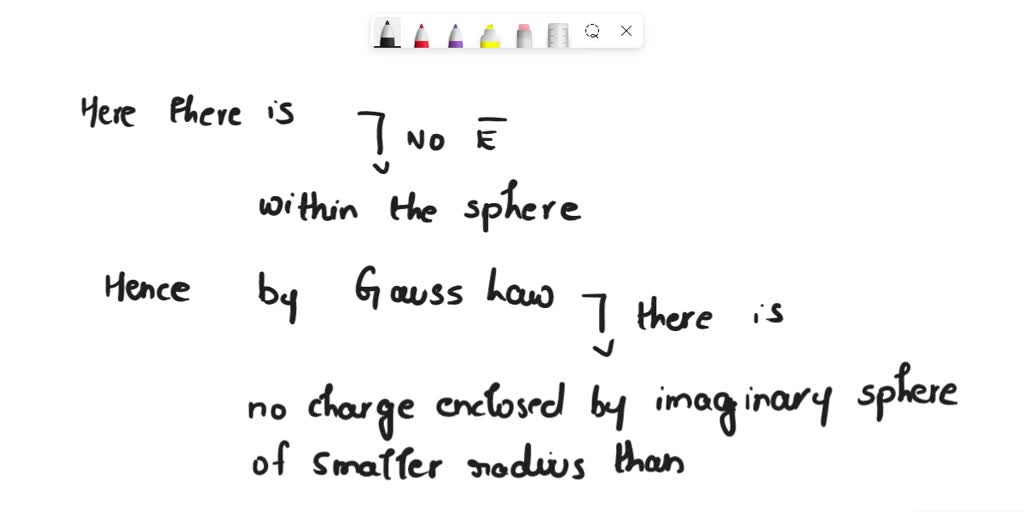 Here there is
No E
within the sphere
Hence by Gauss Law
there is
no charge enclosed by imaginary sphere
of smaller radius than